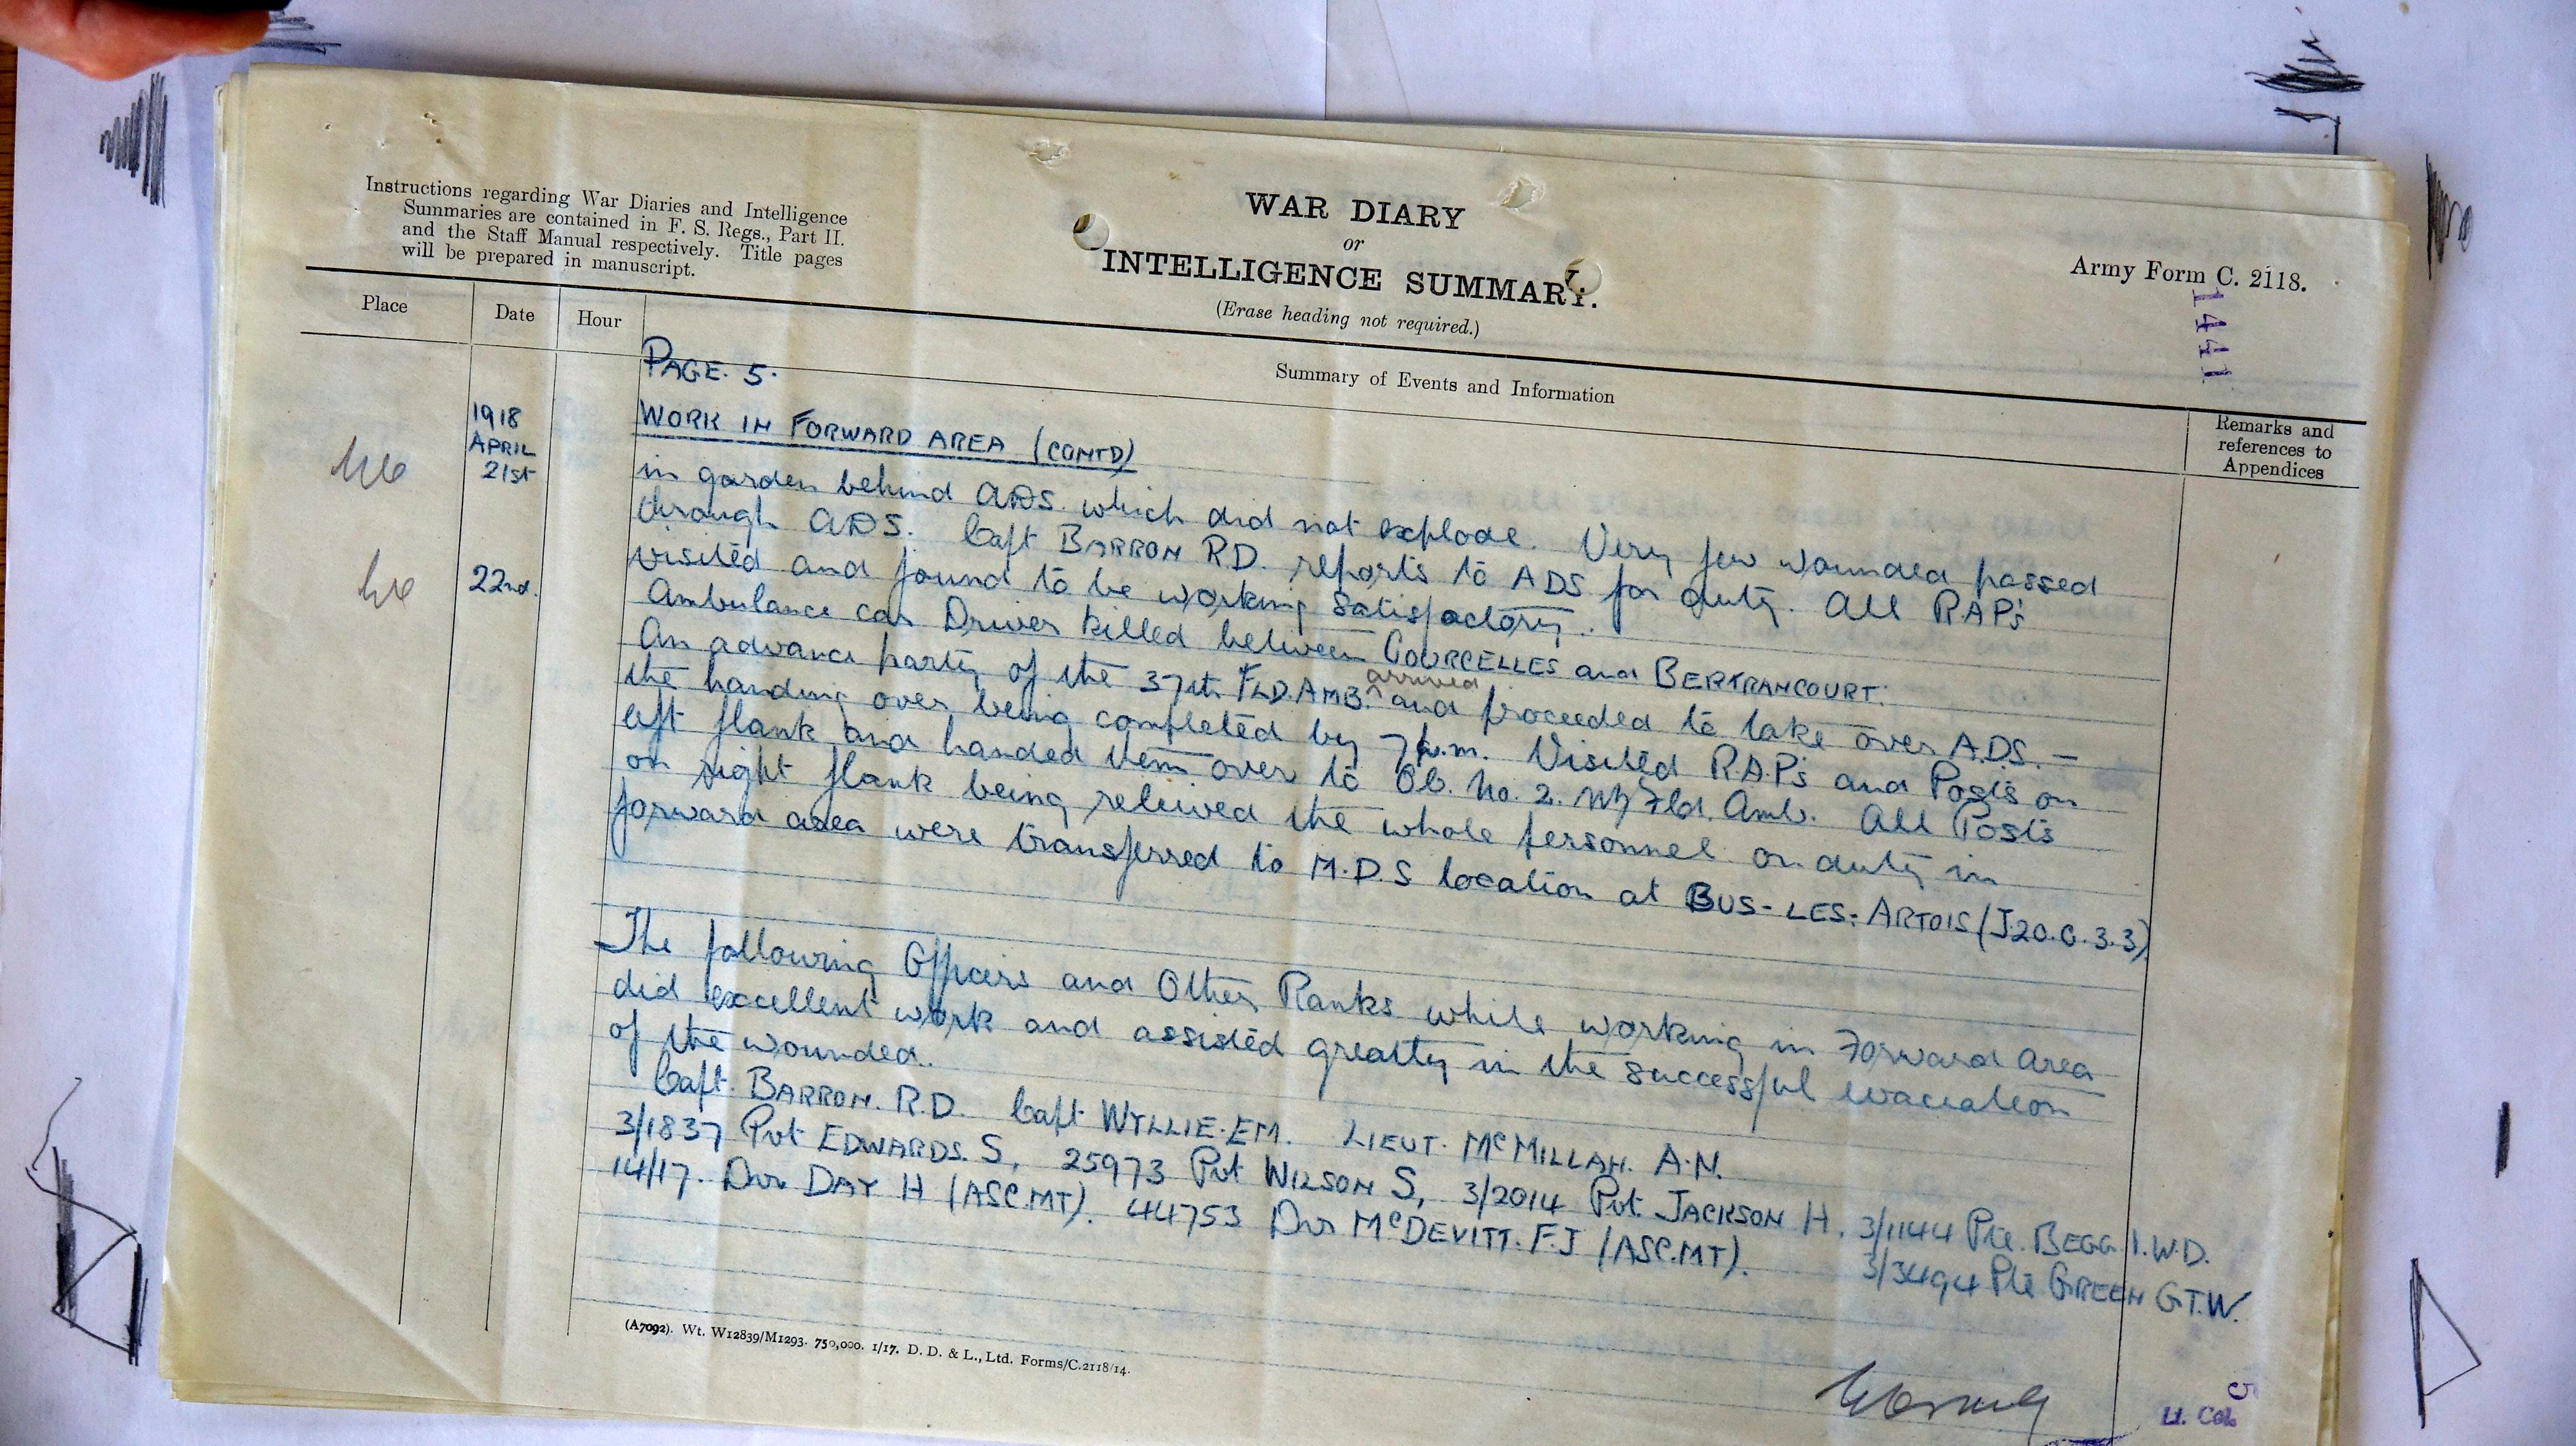 Instructions regarding War Diaries and Intelligence
Summaries are contained in F. S. Regs., Part II.
and the Staff Manual respectively. Title pages
will be prepared in manuscript.
WAR DIARY
or
INTELLIGENCE SUMMARY.
(Erase heading not required.)
Army Form C. 2118.
1441
Place
Date
Hour
Summary of Events and Information
Remarks and
references to
Appendices
PAGE. 5.
1918
APRIL
21st
WORK IN FORWARD AREA (CONTD)
in garden behind ADS. which did not explode. Very few wounded passed
through ADS. Capt BARRON RD. reports to ADS for duty. All R.A.P's
visited and found to be working satisfactory.
Ambulance car Driver killed between COURCELLES and BERTRANCOURT.
22nd.
An advance party of the 37th FLD.AMB. arrived and proceeded to take over A.D.S. —
the handing over being completed by 7p.m. Visited R.A.P's and Posts on
left flank and handed them over to OC. No. 2. NZ Fld. Amb. All Posts
on right flank being relieved the whole personnel on duty in
forward area were transferred to M.D.S location at BUS-LES-ARTOIS (J.20.C.3.3)
The following Officers and Other Ranks while working in Forward Area
did excellent work and assisted greatly in the successful evacuation
of the wounded.
Capt. BARRON. R.D. Capt WYLLIE. EM. LIEUT. McMILLAN. A.N.
3/1837 Pvt EDWARDS. S, 25973 Pvt WILSON S, 3/2014 Pvt. JACKSON H. 3/1144 Pte. BEGG. I.W.D.
14/17. Dvr DAY H (ASC.MT). 44753 Dvr McDEVITT. F.J (ASC.MT). 3/3494 Pte GREEN G.T.W.
(A7092). Wt. W12839/M1293. 750,000. 1/17. D. D. & L., Ltd. Forms/C.2118/14.
Lt. Col.